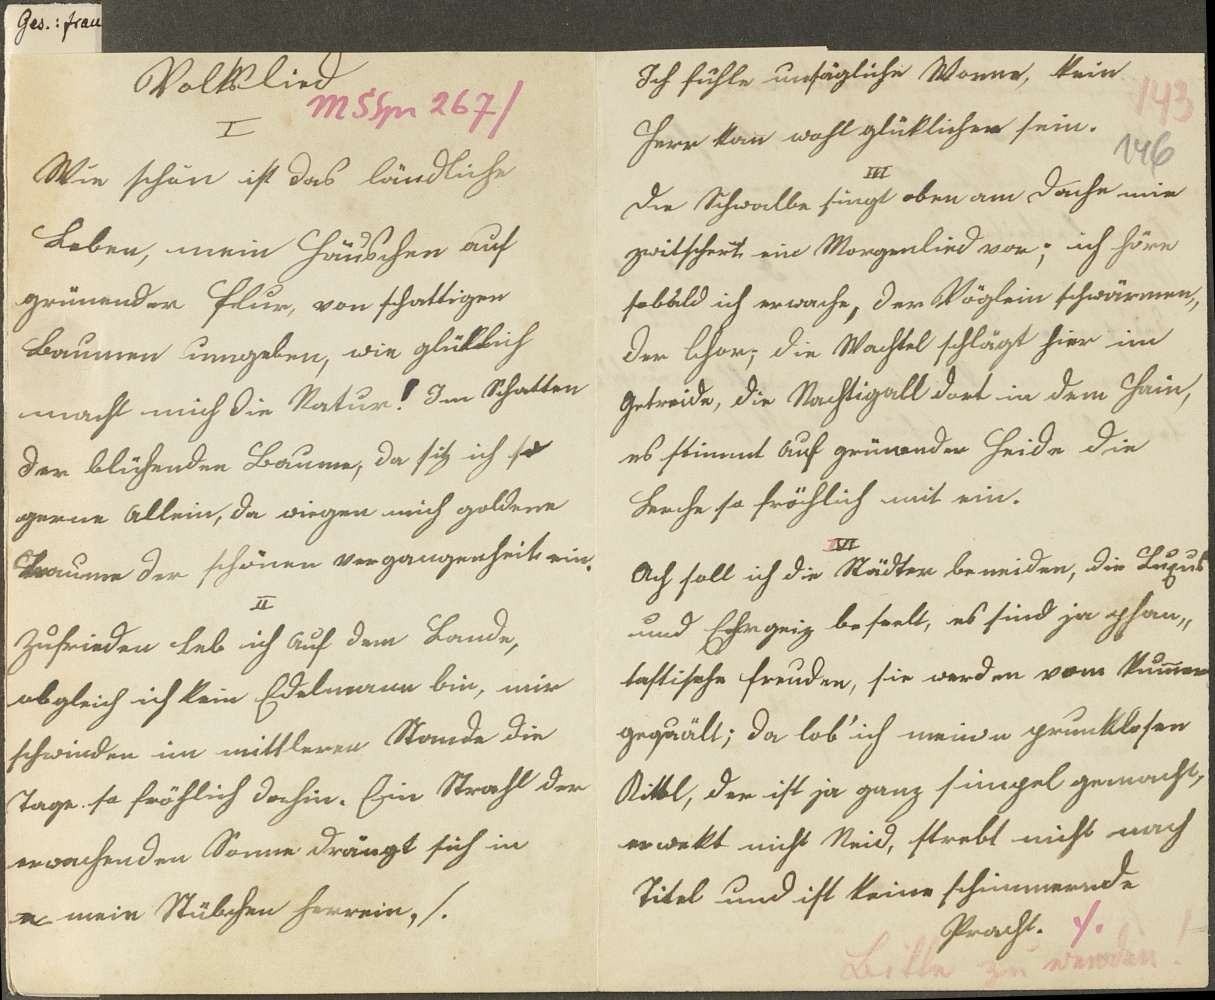 Ges.: frau
Volkslied
MSSpn 267/
I
Wie schön ist das ländliche
Leben, mein Häuschen auf
grünender Flur, von schattigen
Baumen umgeben, wie glüklich
macht mich die Natur! Im Schatten
der blühenden Baume, da sitz ich so
gerne allein, da wiegen mich goldene
Traume der schönen vergangenheit ein.
II
Zufrieden leb ich auf dem Lande,
obgleich ich kein Edelmann bin, mir
schwinden im mittleren Stande die
Tage so fröhlich dahin. Ein Strahl der
erwachenden Sonne drängt sich in
mein Stübchen herrein, /.
Ich fühle unsägliche Wonne, kein
143
Herr kan̄ wohl glüklicher sein.
146
III
Die Schwalbe singt oben am Dache mir
zwitschert ein Morgenlied vor; ich höre
sobald ich erwache, der Vöglein schwärmen„
der Chor; die Wachtel schlägt hier im
Getreide, die Nachtigall dort in dem Hain,
es stimmt auf grünender Heide die
Lerche so fröhlich mit ein.
IV
Ach soll ich die Städter beneiden, die Luxus
und Ehrgeiz beseelt, es sind ja phan„
tastische Freuden, sie werden vom Kum̄er
gequält; da lob' ich meinen prunklosen
Kittel, der ist ja ganz simpel gemacht,
erwekt nicht Neid, strebt nicht nach
Titel und ist keine schimmernde
Pracht. /.
Bitte zu wenden!